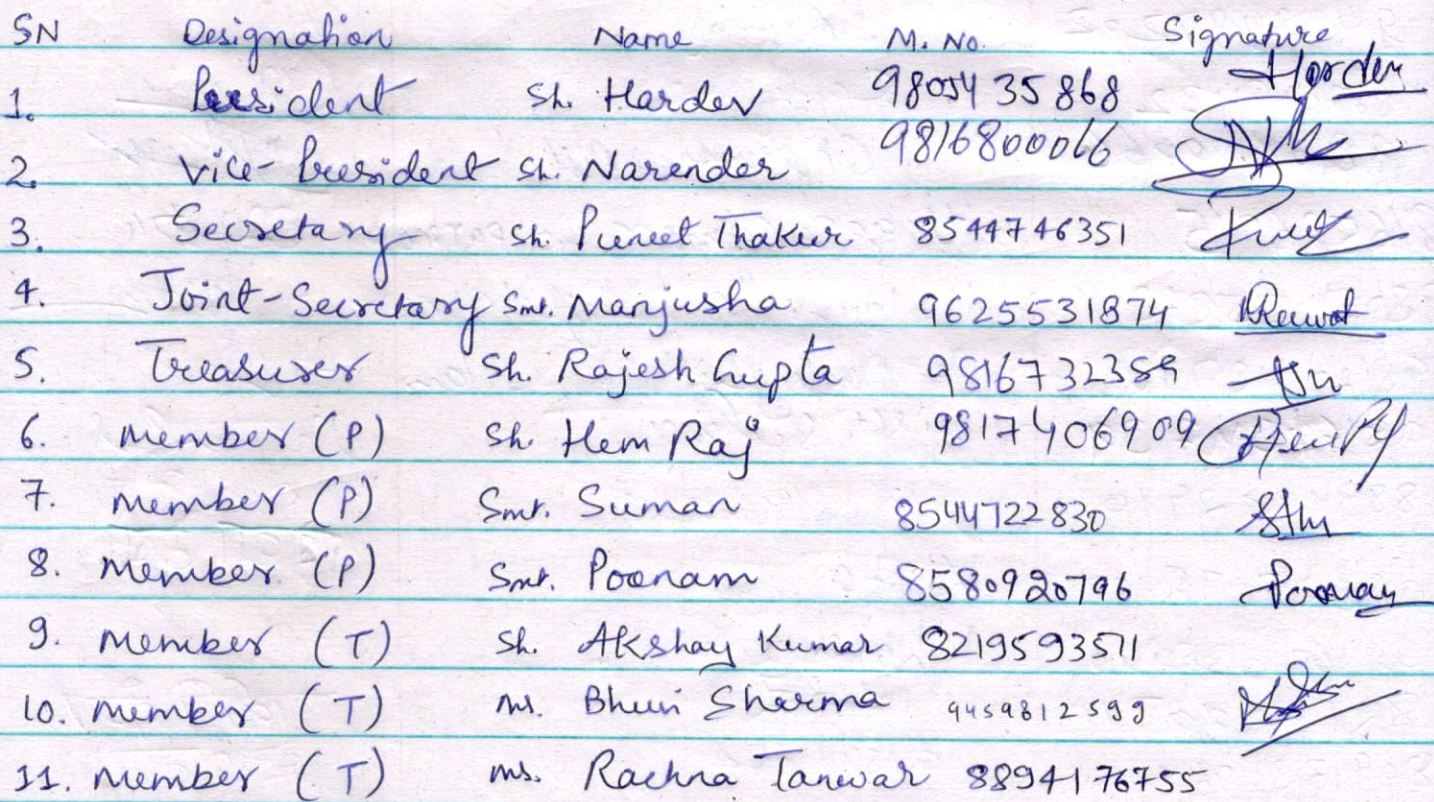 SN Designation Name M. No. Signature
1. President Sh. Hardev 9805435868 Hardev
2. Vice-President Sh. Narender 9816800066
3. Secretary Sh. Puneet Thakur 8544746351
4. Joint-Secretary Smt. Manjusha 9625531874 Rawat
5. Treasurer Sh. Rajesh Gupta 9816732389
6. Member (P) Sh. Hem Raj 9817406909
7. Member (P) Smt. Suman 8544722830
8. Member (P) Smt. Poonam 8580920796 Poonam
9. Member (T) Sh. Akshay Kumar 8219593571
10. Member (T) Ms. Sharma 9459812599
11. Member (T) Ms. Rachna Tanwar 8894176755